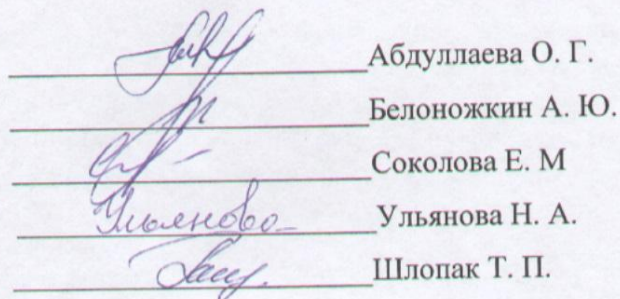 Абдуллаева О. Г.
Белоножкин А. Ю.
Соколова Е. М
Ульянова Ульянова Н. А.
Шлопак Т. П.